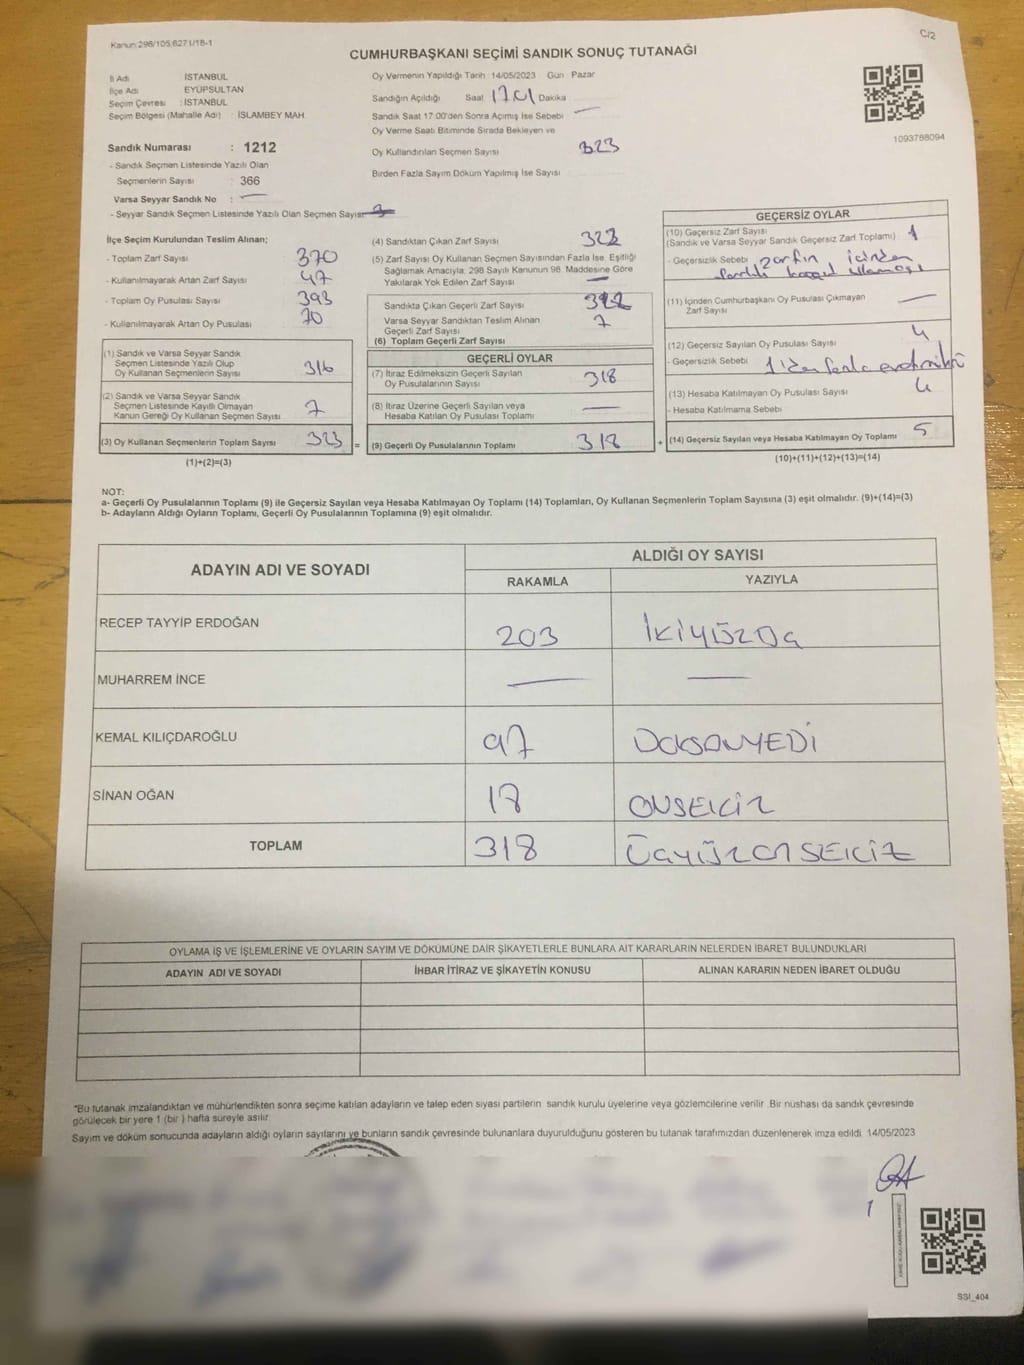 Kanun:298/105,6271/18-1
C/2
CUMHURBAŞKANI SEÇİMİ SANDIK SONUÇ TUTANAĞI
İl Adı İSTANBUL
İlçe Adı EYÜPSULTAN
Seçim Çevresi : İSTANBUL
Seçim Bölgesi (Mahalle Adı) : İSLAMBEY MAH.
Sandık Numarası : 1212
- Sandık Seçmen Listesinde Yazılı Olan
Seçmenlerin Sayısı : 366
Varsa Seyyar Sandık No :
- Seyyar Sandık Seçmen Listesinde Yazılı Olan Seçmen Sayısı
Oy Vermenin Yapıldığı Tarih :14/05/2023 Gün Pazar
Sandığın Açıldığı Saat 17.01 Dakika
Sandık Saat 17:00'den Sonra Açılmış İse Sebebi
Oy Verme Saati Bitiminde Sırada Bekleyen ve
Oy Kullandırılan Seçmen Sayısı 323
Birden Fazla Sayım Döküm Yapılmış İse Sayısı
1093768094
İlçe Seçim Kurulundan Teslim Alınan;
- Toplam Zarf Sayısı 370
- Kullanılmayarak Artan Zarf Sayısı 47
- Toplam Oy Pusulası Sayısı 393
- Kullanılmayarak Artan Oy Pusulası 70
(1) Sandık ve Varsa Seyyar Sandık
Seçmen Listesinde Yazılı Olup
Oy Kullanan Seçmenlerin Sayısı 316
(2) Sandık ve Varsa Seyyar Sandık
Seçmen Listesinde Kayıtlı Olmayan
Kanun Gereği Oy Kullanan Seçmen Sayısı 7
(3) Oy Kullanan Seçmenlerin Toplam Sayısı 323 =
(1)+(2)=(3)
(4) Sandıktan Çıkan Zarf Sayısı 323
(5) Zarf Sayısı Oy Kullanan Seçmen Sayısından Fazla İse, Eşitliği
Sağlamak Amacıyla, 298 Sayılı Kanunun 98. Maddesine Göre
Yakılarak Yok Edilen Zarf Sayısı
Sandıkta Çıkan Geçerli Zarf Sayısı 322
Varsa Seyyar Sandıktan Teslim Alınan
Geçerli Zarf Sayısı 7
(6) Toplam Geçerli Zarf Sayısı
GEÇERLİ OYLAR
(7) İtiraz Edilmeksizin Geçerli Sayılan
Oy Pusulalarının Sayısı 318
(8) İtiraz Üzerine Geçerli Sayılan veya
Hesaba Katılan Oy Pusulası Toplamı
(9) Geçerli Oy Pusulalarının Toplamı 318 +
GEÇERSİZ OYLAR
(10) Geçersiz Zarf Sayısı
(Sandık ve Varsa Seyyar Sandık Geçersiz Zarf Toplamı) 1
- Geçersizlik Sebebi zarfın içinden
farklı kağıt
(11) İçinden Cumhurbaşkanı Oy Pusulası Çıkmayan
Zarf Sayısı
(12) Geçersiz Sayılan Oy Pusulası Sayısı 4
- Geçersizlik Sebebi 1'den fazla
(13) Hesaba Katılmayan Oy Pusulası Sayısı 4
- Hesaba Katılmama Sebebi
(14) Geçersiz Sayılan veya Hesaba Katılmayan Oy Toplamı 5
(10)+(11)+(12)+(13)=(14)
NOT:
a- Geçerli Oy Pusulalarının Toplamı (9) ile Geçersiz Sayılan veya Hesaba Katılmayan Oy Toplamı (14) Toplamları, Oy Kullanan Seçmenlerin Toplam Sayısına (3) eşit olmalıdır. (9)+(14)=(3)
b- Adayların Aldığı Oyların Toplamı, Geçerli Oy Pusulalarının Toplamına (9) eşit olmalıdır.
ADAYIN ADI VE SOYADI ALDIĞI OY SAYISI
RAKAMLA YAZIYLA
RECEP TAYYİP ERDOĞAN 203 İKİYÜZÜÇ
MUHARREM İNCE
KEMAL KILIÇDAROĞLU 97 DOKSANYEDİ
SİNAN OĞAN 18 ONSEKİZ
TOPLAM 318 ÜÇYÜZONSEKİZ
OYLAMA İŞ VE İŞLEMLERİNE VE OYLARIN SAYIM VE DÖKÜMÜNE DAİR ŞİKAYETLERLE BUNLARA AİT KARARLARIN NELERDEN İBARET BULUNDUKLARI
ADAYIN ADI VE SOYADI İHBAR İTİRAZ VE ŞİKAYETİN KONUSU ALINAN KARARIN NEDEN İBARET OLDUĞU
*Bu tutanak imzalandıktan ve mühürlendikten sonra seçime katılan adayların ve talep eden siyasi partilerin sandık kurulu üyelerine veya gözlemcilerine verilir. Bir nüshası da sandık çevresinde
görülecek bir yere 1 (bir ) hafta süreyle asılır.
Sayım ve döküm sonucunda adayların aldığı oyların sayılarını ve bunların sandık çevresinde bulunanlara duyurulduğunu gösteren bu tutanak tarafımızdan düzenlenerek imza edildi. 14/05/2023
SSI_404